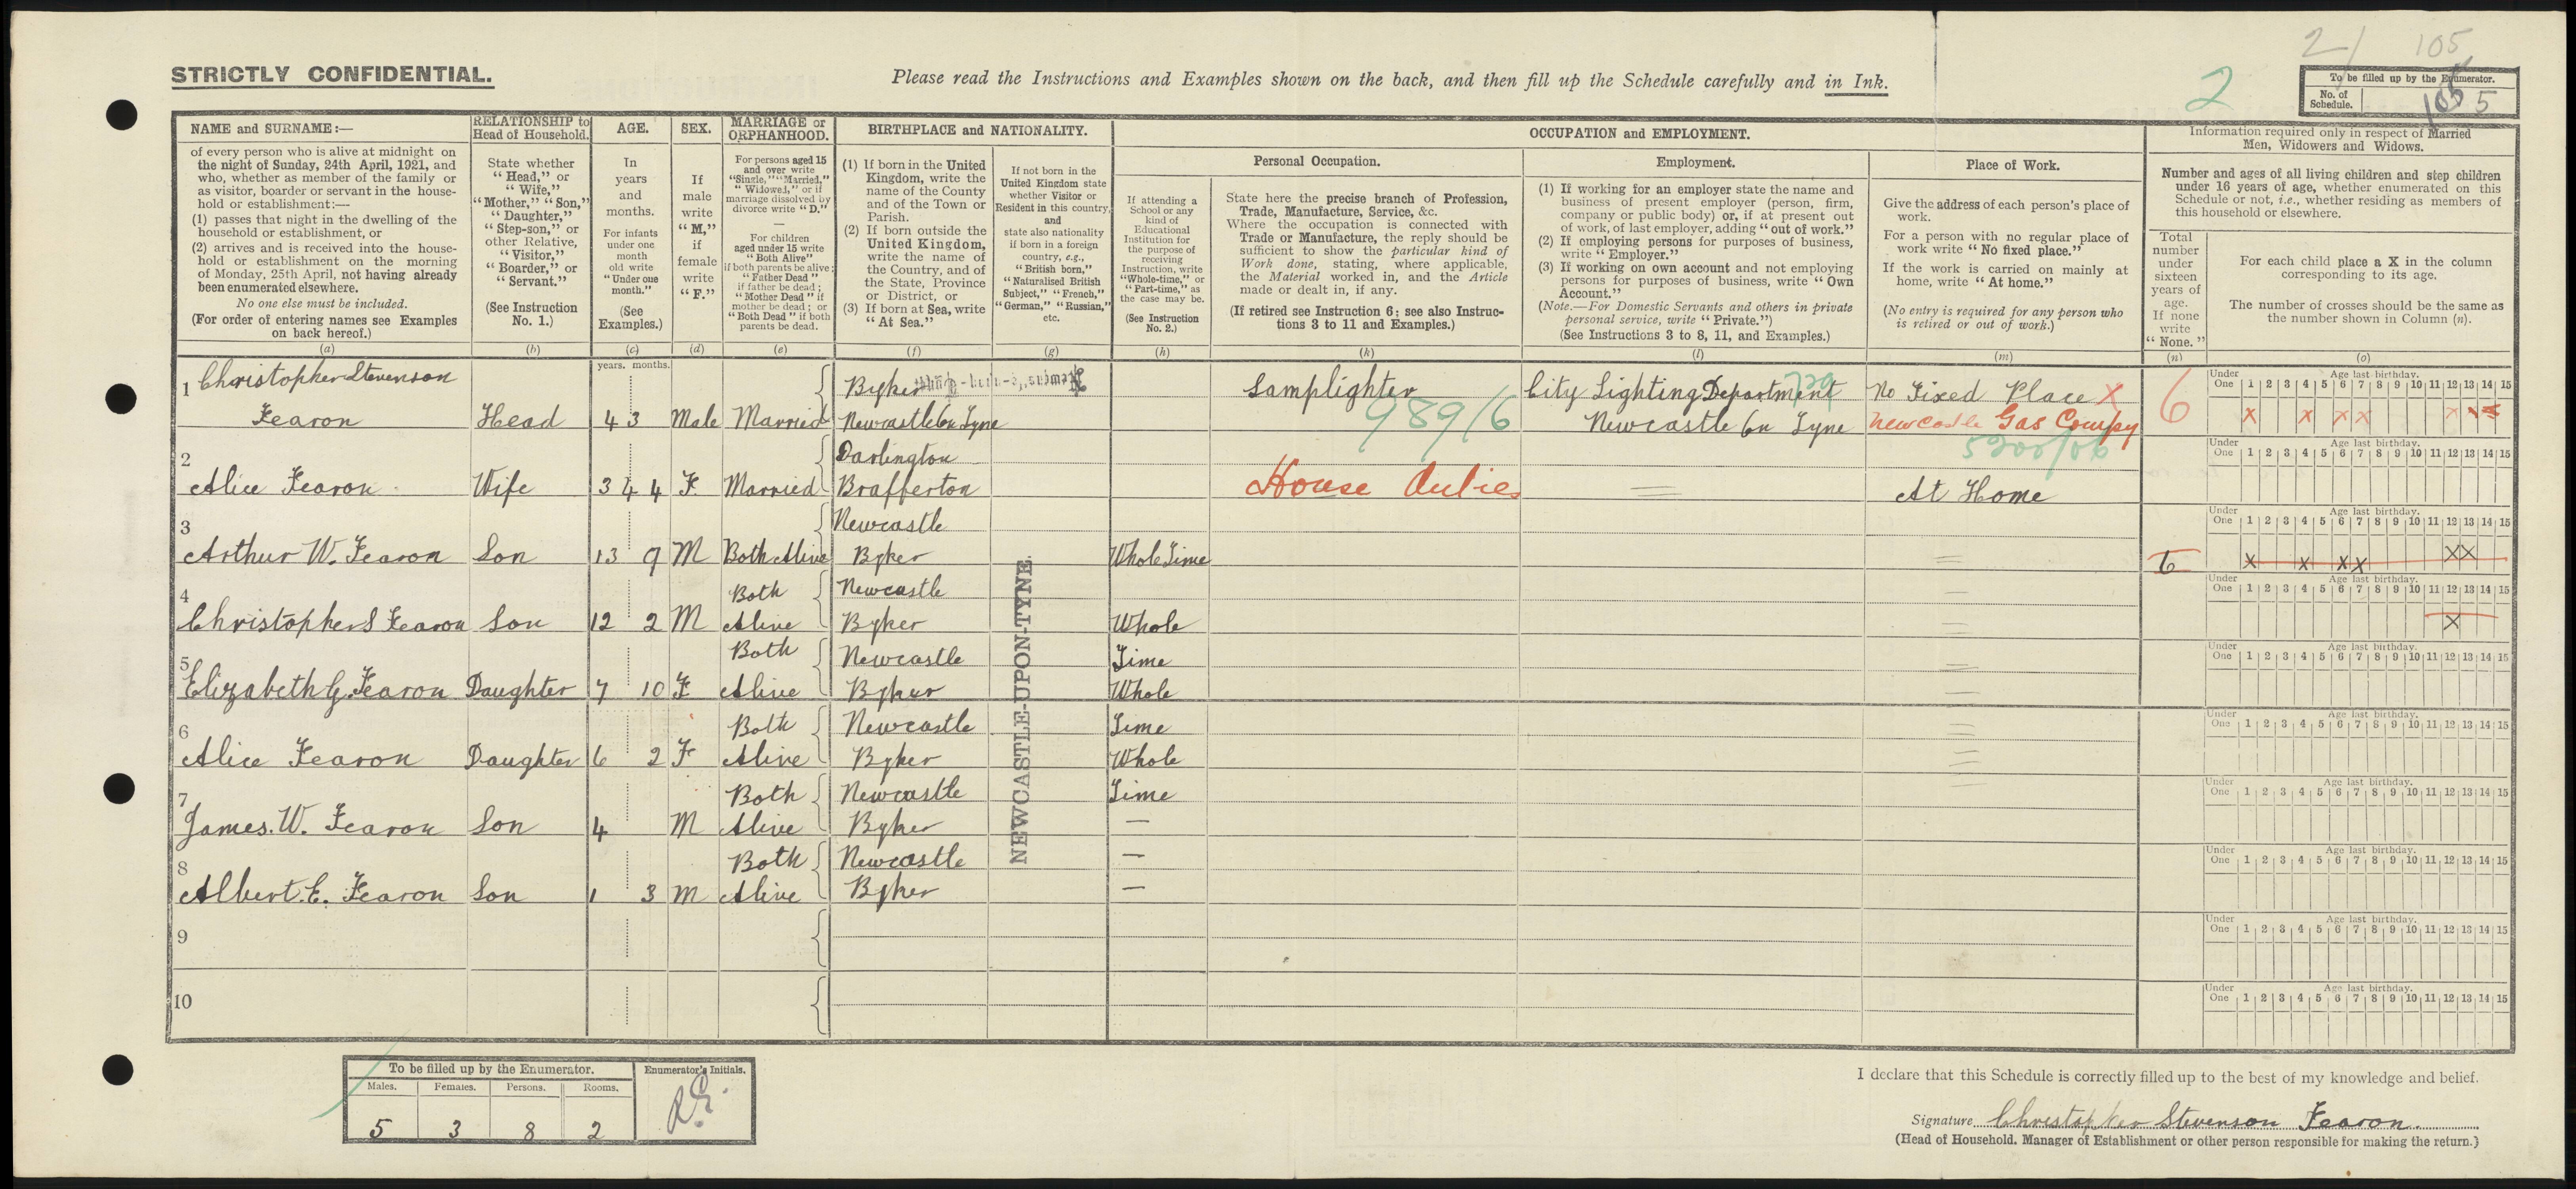 2/ 105
STRICTLY CONFIDENTIAL.
Please read the Instructions and Examples shown on the back, and then fill up the Schedule carefully and in Ink.
2
To be filled up by the Enumerator.
No. of Schedule. 105 5
NAME and SURNAME:—
of every person who is alive at midnight on
the night of Sunday, 24th April, 1921, and
who, whether as member of the family or
as visitor, boarder or servant in the house-
hold or establishment:—
(1) passes that night in the dwelling of the
household or establishment, or
(2) arrives and is received into the house-
hold or establishment on the morning
of Monday, 25th April, not having already
been enumerated elsewhere.
No one else must be included.
(For order of entering names see Examples
on back hereof.)
(a)
RELATIONSHIP to
Head of Household.
State whether
"Head," or
"Wife,"
"Mother," "Son,"
"Daughter,"
"Step-son," or
other Relative,
"Visitor,"
"Boarder," or
"Servant."
(See Instruction
No. 1.)
(b)
AGE.
In
years
and
months.
For infants
under one
month
old write
"Under one
month."
(See
Examples.)
(c)
years. months.
SEX.
If
male
write
"M,"
if
female
write
"F."
(d)
MARRIAGE or
ORPHANHOOD.
For persons aged 15
and over write
"Single," "Married,"
"Widowed," or if
marriage dissolved by
divorce write "D."
—
For children
aged under 15 write
"Both Alive"
if both parents be alive;
"Father Dead"
if father be dead;
"Mother Dead" if
mother be dead; or
"Both Dead" if both
parents be dead.
(e)
BIRTHPLACE and NATIONALITY.
(1) If born in the United
Kingdom, write the
name of the County
and of the Town or
Parish.
(2) If born outside the
United Kingdom,
write the name of
the Country, and of
the State, Province
or District, or
(3) If born at Sea, write
"At Sea."
(f)
If not born in the
United Kingdom state
whether Visitor or
Resident in this country,
and
state also nationality
if born in a foreign
country, e.g.,
"British born,"
"Naturalised British
Subject," "French,"
"German," "Russian,"
etc.
(g)
OCCUPATION and EMPLOYMENT.
If attending a
School or any
kind of
Educational
Institution for
the purpose of
receiving
Instruction, write
"Whole-time," or
"Part-time," as
the case may be.
(See Instruction
No. 2.)
(h)
Personal Occupation.
State here the precise branch of Profession,
Trade, Manufacture, Service, &c.
Where the occupation is connected with
Trade or Manufacture, the reply should be
sufficient to show the particular kind of
Work done, stating, where applicable,
the Material worked in, and the Article
made or dealt in, if any.
(If retired see Instruction 6; see also Instruc-
tions 3 to 11 and Examples.)
(k)
Employment.
(1) If working for an employer state the name and
business of present employer (person, firm,
company or public body) or, if at present out
of work, of last employer, adding "out of work."
(2) If employing persons for purposes of business,
write "Employer."
(3) If working on own account and not employing
persons for purposes of business, write "Own
Account."
(Note.—For Domestic Servants and others in private
personal service, write "Private.")
(See Instructions 3 to 8, 11, and Examples.)
(l)
Place of Work.
Give the address of each person's place of
work.
For a person with no regular place of
work write "No fixed place."
If the work is carried on mainly at
home, write "At home."
(No entry is required for any person who
is retired or out of work.)
(m)
Information required only in respect of Married
Men, Widowers and Widows.
Number and ages of all living children and step children
under 16 years of age, whether enumerated on this
Schedule or not, i.e., whether residing as members of
this household or elsewhere.
Total
number
under
sixteen
years of
age.
If none
write
"None."
(n)
For each child place a X in the column
corresponding to its age.
The number of crosses should be the same as
the number shown in Column (n).
(o)
Under One Age last birthday. 1 2 3 4 5 6 7 8 9 10 11 12 13 14 15
1 Christopher Stevenson Byker Lamplighter City Lighting Department 729 No Fixed Place X 6
Fearon Head 43 Male Married Newcastle On Tyne 989/6 Newcastle On Tyne Newcastle Gas Compy
2 Darlington 5200/06
Alice Fearon Wife 34 4 F. Married Brafferton House Duties At Home
3 Newcastle
Arthur W. Fearon Son 13 9 M Both Alive Byker Whole Time 6
4 Both Newcastle
Christopher S Fearon Son 12 2 M Alive Byker Whole
5 Both Newcastle Time
Elizabeth G. Fearon Daughter 7 10 F Alive Byker Whole
6 Both Newcastle Time
Alice Fearon Daughter 6 2 F Alive Byker Whole
7 Both Newcastle Time
James. W. Fearon Son 4 M Alive Byker —
8 Both Newcastle —
Albert. E. Fearon Son 1 3 M Alive Byker —
9
10
NEWCASTLE-UPON-TYNE.
To be filled up by the Enumerator.
Males. Females. Persons. Rooms.
5 3 8 2
Enumerator's Initials.
I declare that this Schedule is correctly filled up to the best of my knowledge and belief.
Signature Christopher Stevenson Fearon.
(Head of Household, Manager of Establishment or other person responsible for making the return.)